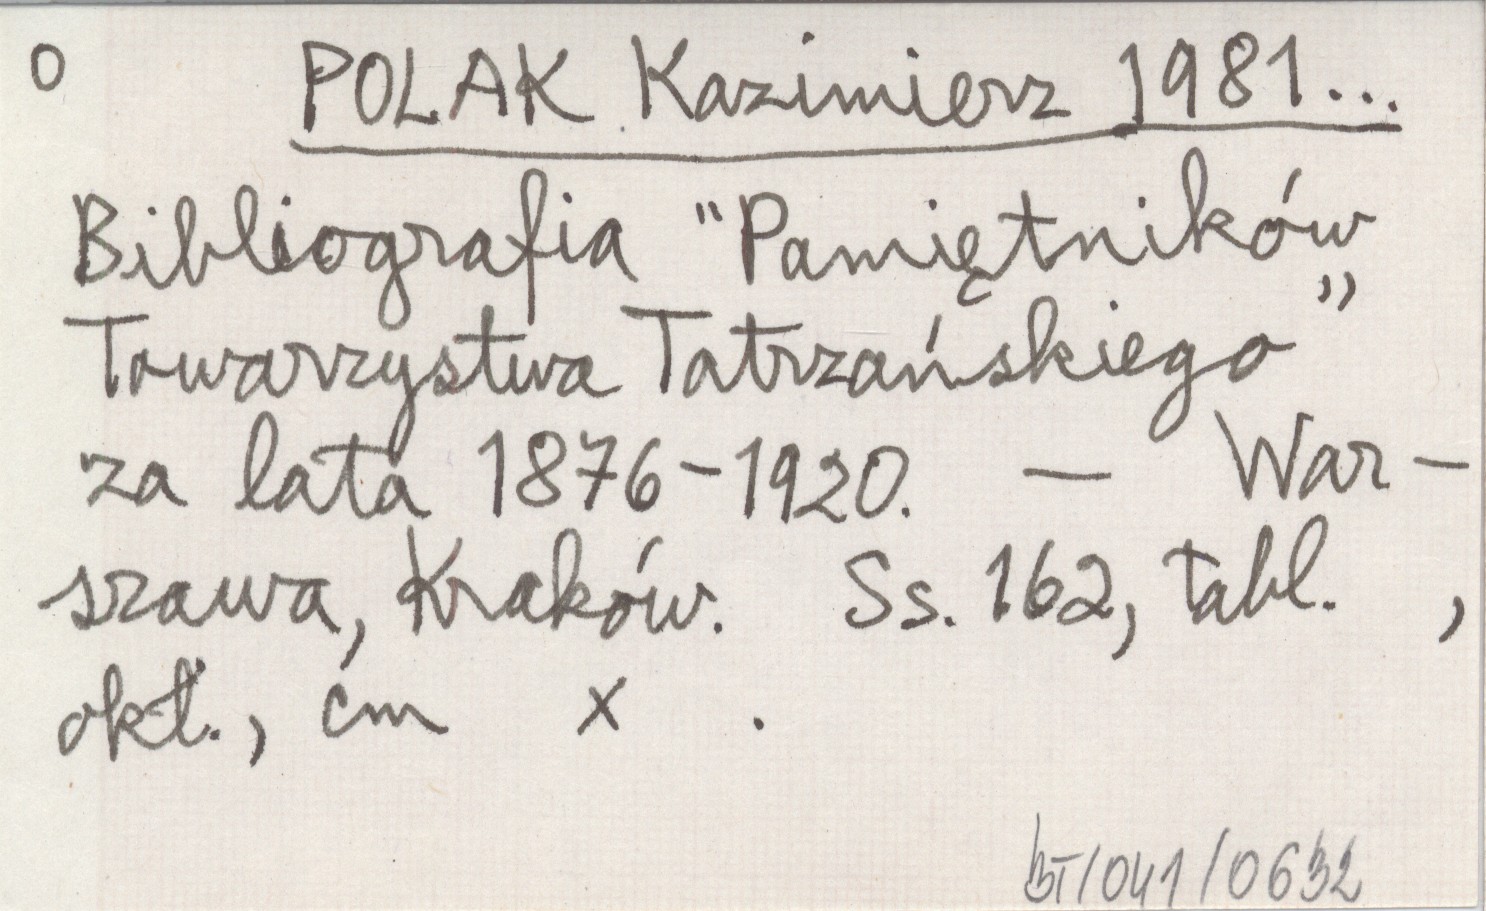 O POLAK Kazimierz 1981...
Bibliografia "Pamiętników
Towarzystwa Tatrzańskiego"
za lata 1876-1920. — War-
szawa, Kraków. Ss. 162, tabl. ,
okł., cm x .
BT/041/0632